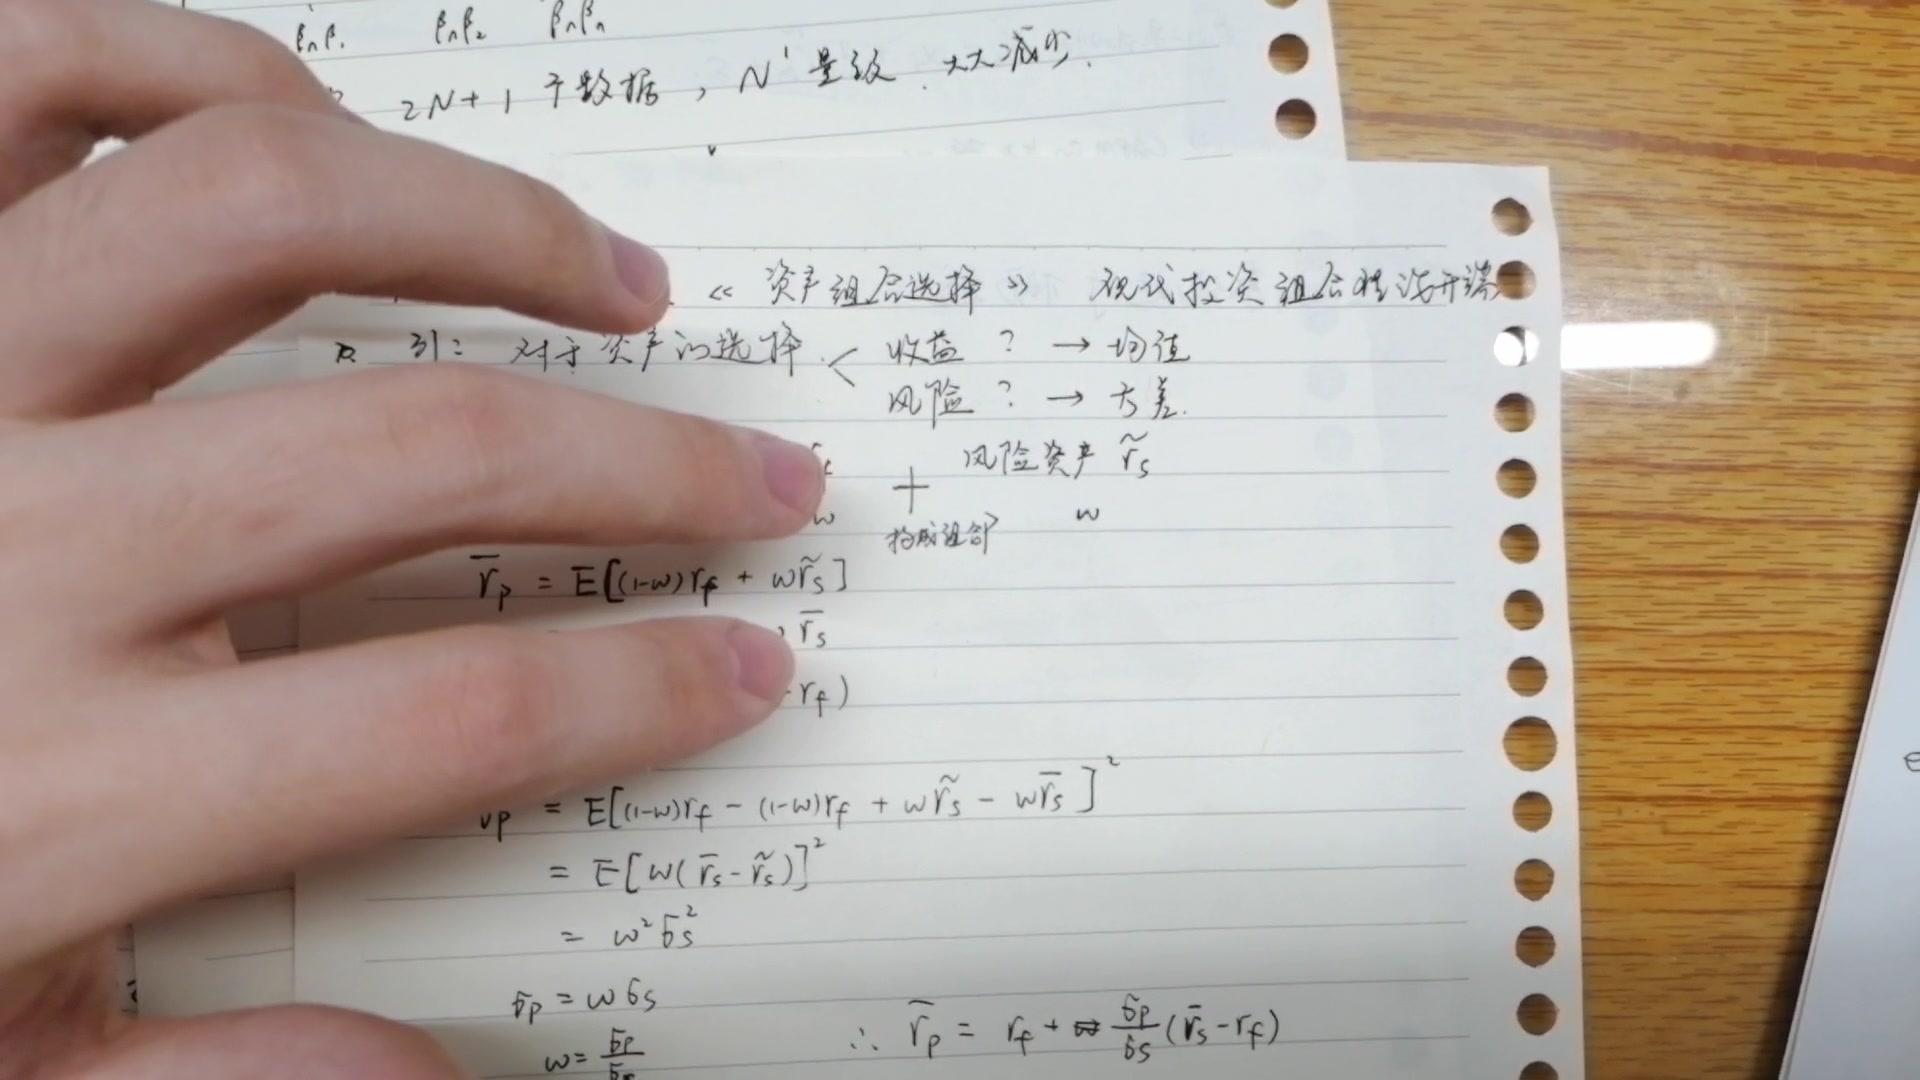 βₙβ₁ βₙβ₂ βₙβₙ
2N+1 个数据，N¹量级．大大减少．
《资产组合选择》 现代投资组合理论开端
引：对于资产的选择 < 收益？→ 均值
风险？→ 方差.
+ 风险资产 r̃s
w 构成组合 w
r̄p = E[(1-w)rf + wr̃s]
r̄s
rf)
= E[(1-w)rf - (1-w)rf + wr̃s - wr̄s]²
= E[w(r̄s - r̃s)]²
= w²σs²
σp = wσs
∴ r̄p = rf + σp/σs (r̄s - rf)
w = σp/σs